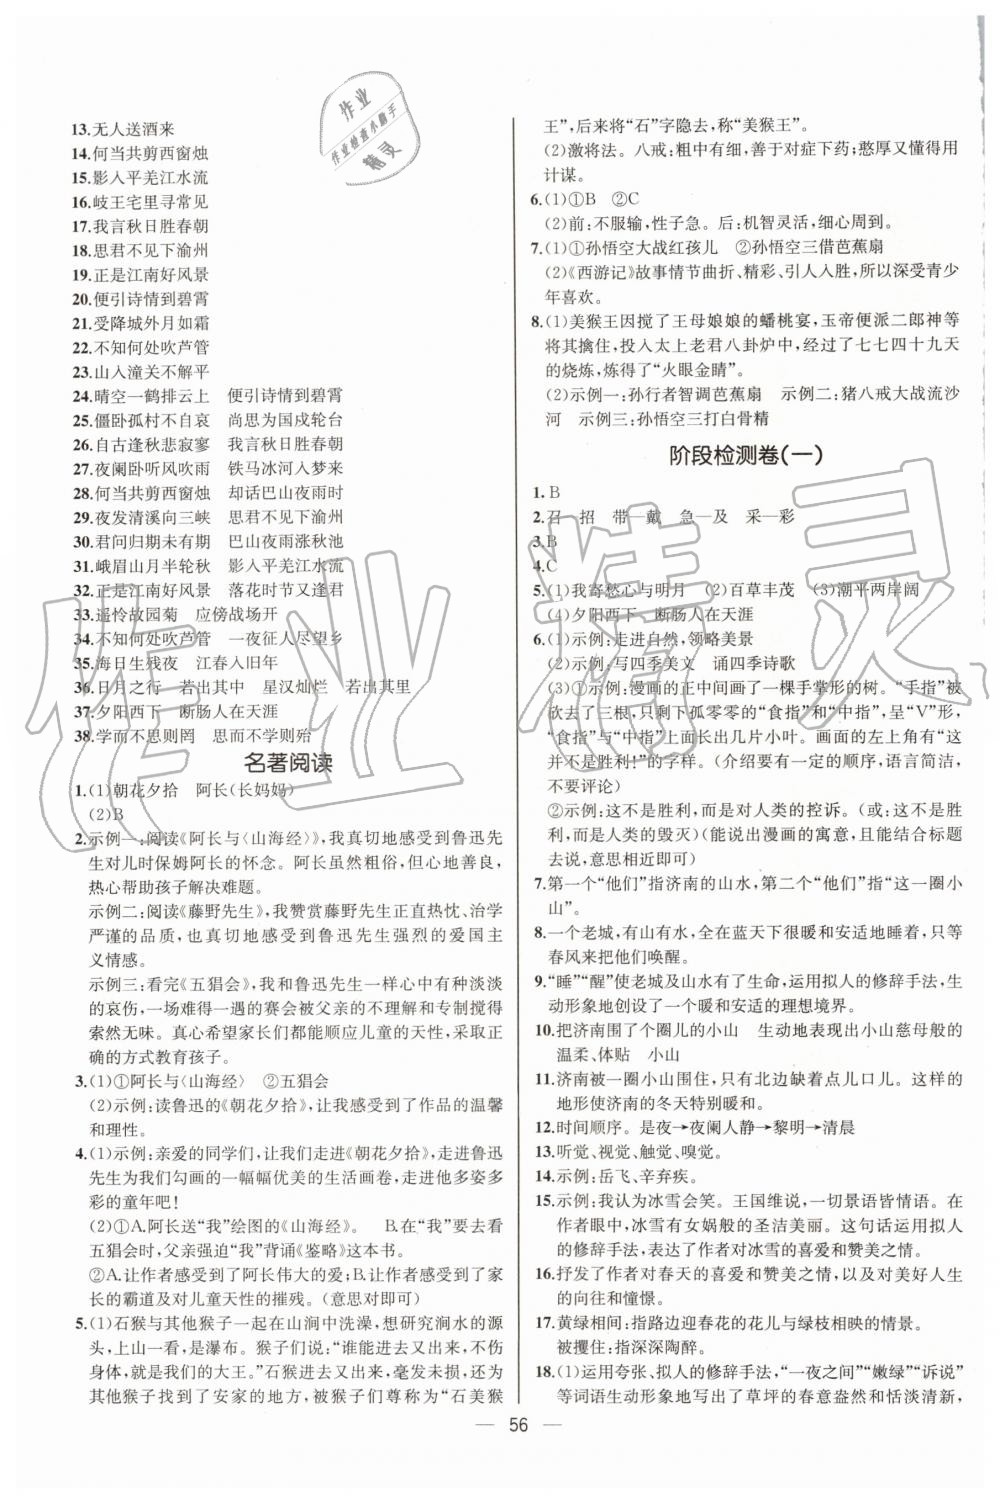 13.无人送酒来
14.何当共剪西窗烛
15.影入平羌江水流
16.岐王宅里寻常见
17.我言秋日胜春朝
18.思君不见下渝州
19.正是江南好风景
20.便引诗情到碧霄
21.受降城外月如霜
22.不知何处吹芦管
23.山入潼关不解平
24.晴空一鹤排云上　便引诗情到碧霄
25.僵卧孤村不自哀　尚思为国戍轮台
26.自古逢秋悲寂寥　我言秋日胜春朝
27.夜阑卧听风吹雨　铁马冰河入梦来
28.何当共剪西窗烛　却话巴山夜雨时
29.夜发清溪向三峡　思君不见下渝州
30.君问归期未有期　巴山夜雨涨秋池
31.峨眉山月半轮秋　影入平羌江水流
32.正是江南好风景　落花时节又逢君
33.遥怜故园菊　应傍战场开
34.不知何处吹芦管　一夜征人尽望乡
35.海日生残夜　江春入旧年
36.日月之行　若出其中　星汉灿烂　若出其里
37.夕阳西下　断肠人在天涯
38.学而不思则罔　思而不学则殆
名著阅读
1.(1)朝花夕拾　阿长(长妈妈)
(2)B
2.示例一:阅读《阿长与〈山海经〉》,我真切地感受到鲁迅先
生对儿时保姆阿长的怀念。阿长虽然粗俗,但心地善良,
热心帮助孩子解决难题。
示例二:阅读《藤野先生》,我赞赏藤野先生正直热忱、治学
严谨的品质,也真切地感受到鲁迅先生强烈的爱国主
义情感。
示例三:看完《五猖会》,我和鲁迅先生一样心中有种淡淡
的哀伤,一场难得一遇的赛会被父亲的不理解和专制搅得
索然无味。真心希望家长们都能顺应儿童的天性,采取正
确的方式教育孩子。
3.(1)①阿长与〈山海经〉　②五猖会
(2)示例:读鲁迅的《朝花夕拾》,让我感受到了作品的温馨
和理性。
4.(1)示例:亲爱的同学们,让我们走进《朝花夕拾》,走进鲁迅
先生为我们勾画的一幅幅优美的生活画卷,走进他多姿多
彩的童年吧!
(2)①A.阿长送“我”绘图的《山海经》。　B.在“我”要去看
五猖会时,父亲强迫“我”背诵《鉴略》这本书。
②A.让作者感受到了阿长伟大的爱;B.让作者感受到了家
长的霸道及对儿童天性的摧残。(意思对即可)
5.(1)石猴与其他猴子一起在山涧中洗澡,想研究涧水的源
头,上前一看,是瀑布。猴子们说:“谁能进去又出来,不伤
身体,就是我们的大王。”石猴进去又出来,毫发未损,还为
其他猴子找到了安家的地方,被猴子们尊称为“石美猴
王”,后来将“石”字隐去,称“美猴王”。
(2)激将法。八戒:粗中有细,善于对症下药;憨厚又懂得用
计谋。
6.(1)①B　②C
(2)前:不服输,性子急。后:机智灵活,细心周到。
7.(1)①孙悟空大战红孩儿　②孙悟空三借芭蕉扇
(2)《西游记》故事情节曲折、精彩、引人入胜,所以深受青少
年喜欢。
8.(1)美猴王因搅了王母娘娘的蟠桃宴,玉帝便派二郎神等
将其擒住,投入太上老君八卦炉中,经过了七七四十九天
的烧炼,炼得了“火眼金睛”。
(2)示例一:孙行者智调芭蕉扇　示例二:猪八戒大战流沙
河　示例三:孙悟空三打白骨精
阶段检测卷(一)
1.B
2.召—招　带—戴　急—及　采—彩
3.B
4.C
5.(1)我寄愁心与明月　(2)百草丰茂　(3)潮平两岸阔
(4)夕阳西下　断肠人在天涯
6.(1)示例:走进自然,领略美景
(2)示例:写四季美文　诵四季诗歌
(3)①示例:漫画的正中间画了一棵手掌形的树。“手指”被
砍去了三根,只剩下孤零零的“食指”和“中指”,呈“V”形,
“食指”与“中指”上面长出几片小叶。画面的左上角有“我
胜利!”的字样。(介绍要有一定的顺序,语言简洁,
不要评论)
②示例:这不是胜利,而是对人类的控诉。(或:这不是胜
利,而是人类的毁灭)(能说出漫画的寓意,且能结合标题
去说,意思相近即可)
7.第一个“他们”指济南的山水,第二个“他们”指“这一圈小
山”。
8.一个老城,有山有水,全在蓝天下很暖和安适地睡着,只等
春风来把它们唤醒。
9.“睡”“醒”使老城及山水有了生命,运用拟人的修辞手法,生
动形象地创设了一个暖和安适的理想境界。
10.把济南围了个圈儿的小山　生动地表现出小山慈母般的
温柔、体贴　小山
11.济南被一圈小山围住,只有北边缺着点儿口儿。这样的
地形使济南的冬天特别暖和。
12.时间顺序。是夜→夜阑人静→黎明→清晨
13.听觉、视觉、触觉、嗅觉。
14.示例:岳飞、辛弃疾。
15.示例:我认为冰雪会笑。王国维说,一切景语皆情语。在
作者眼中,冰雪有女娲般的圣洁美丽。这句话运用拟人
的修辞手法,表达了作者对冰雪的喜爱和赞美之情。
16.抒发了作者对春天的喜爱和赞美之情,以及对美好人生
的向往和憧憬。
17.黄绿相间:指路边迎春花的花儿与绿枝相映的情景。
被攫住:指深深陶醉。
18.(1)运用夸张、拟人的修辞手法,“一夜之间”“嫩绿”“诉说”
等词语生动形象地写出了草坪的春意盎然和恬淡清新,
— 56 —
作业
作业检查小助手
精灵
作业精灵